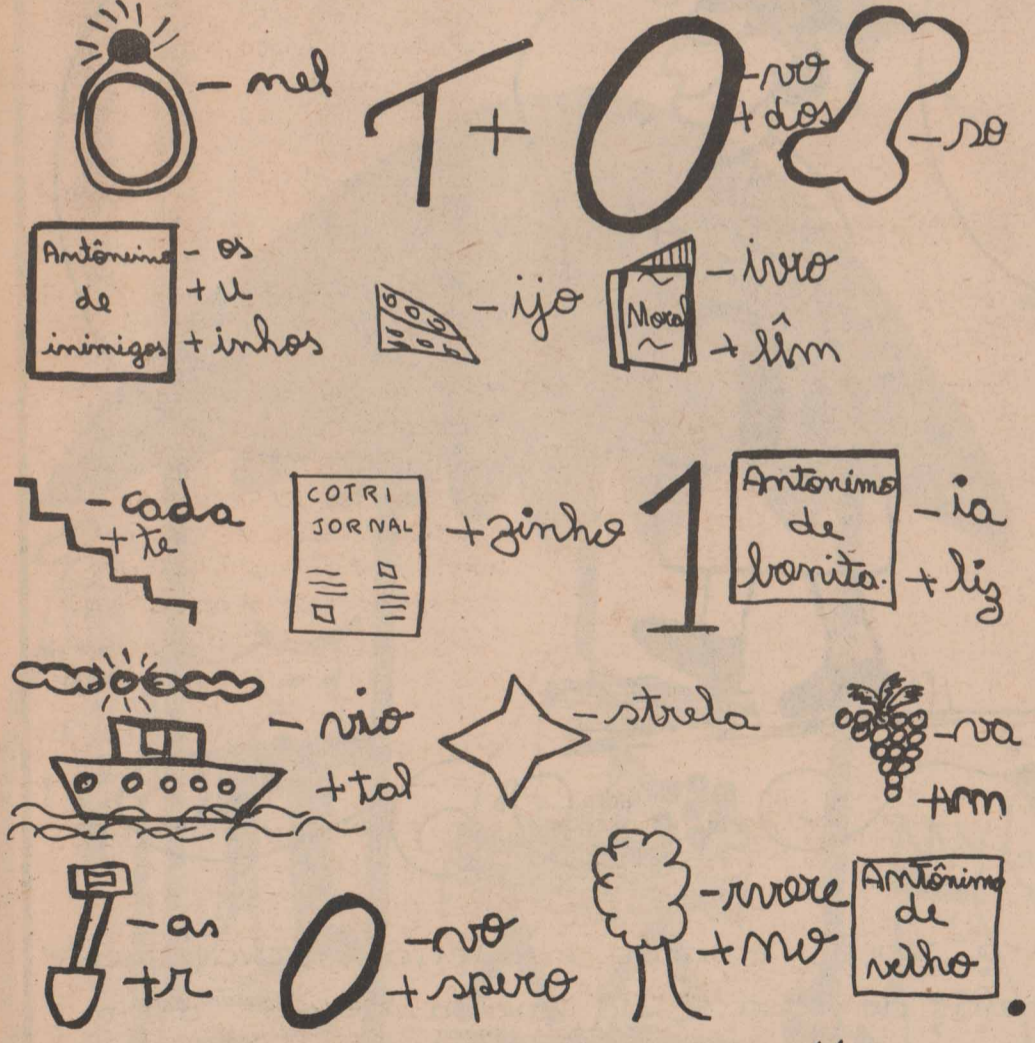 - nel
T +
- vo
+ dos
- so
Antônimo
de
inimigos
- os
+ u
+ inhos
- ijo
Moral
- ivro
+ lêm
- cada
+ te
COTRI
JORNAL
+ zinho
1
Antonimo
de
bonita.
- ia
+ liz
- vio
+ tal
- strela
- va
+ m
- as
+ r
- vo
+ spero
- rvore
+ no
Antônimo
de
velho
.